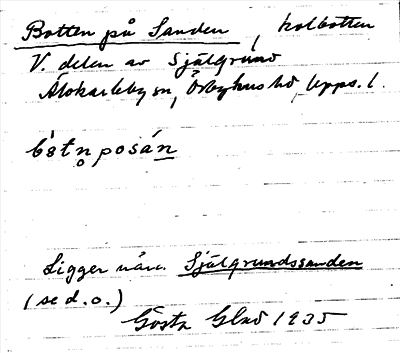 Botten på Sanden, kolbotten
V. delen av Själgrund
Älvkarleby sn, Örbyhus hd, Upps. l.
bȯtn̥ posán
Ligger nära Själgrundssanden
(se d. o.)
Gösta Glad 1935